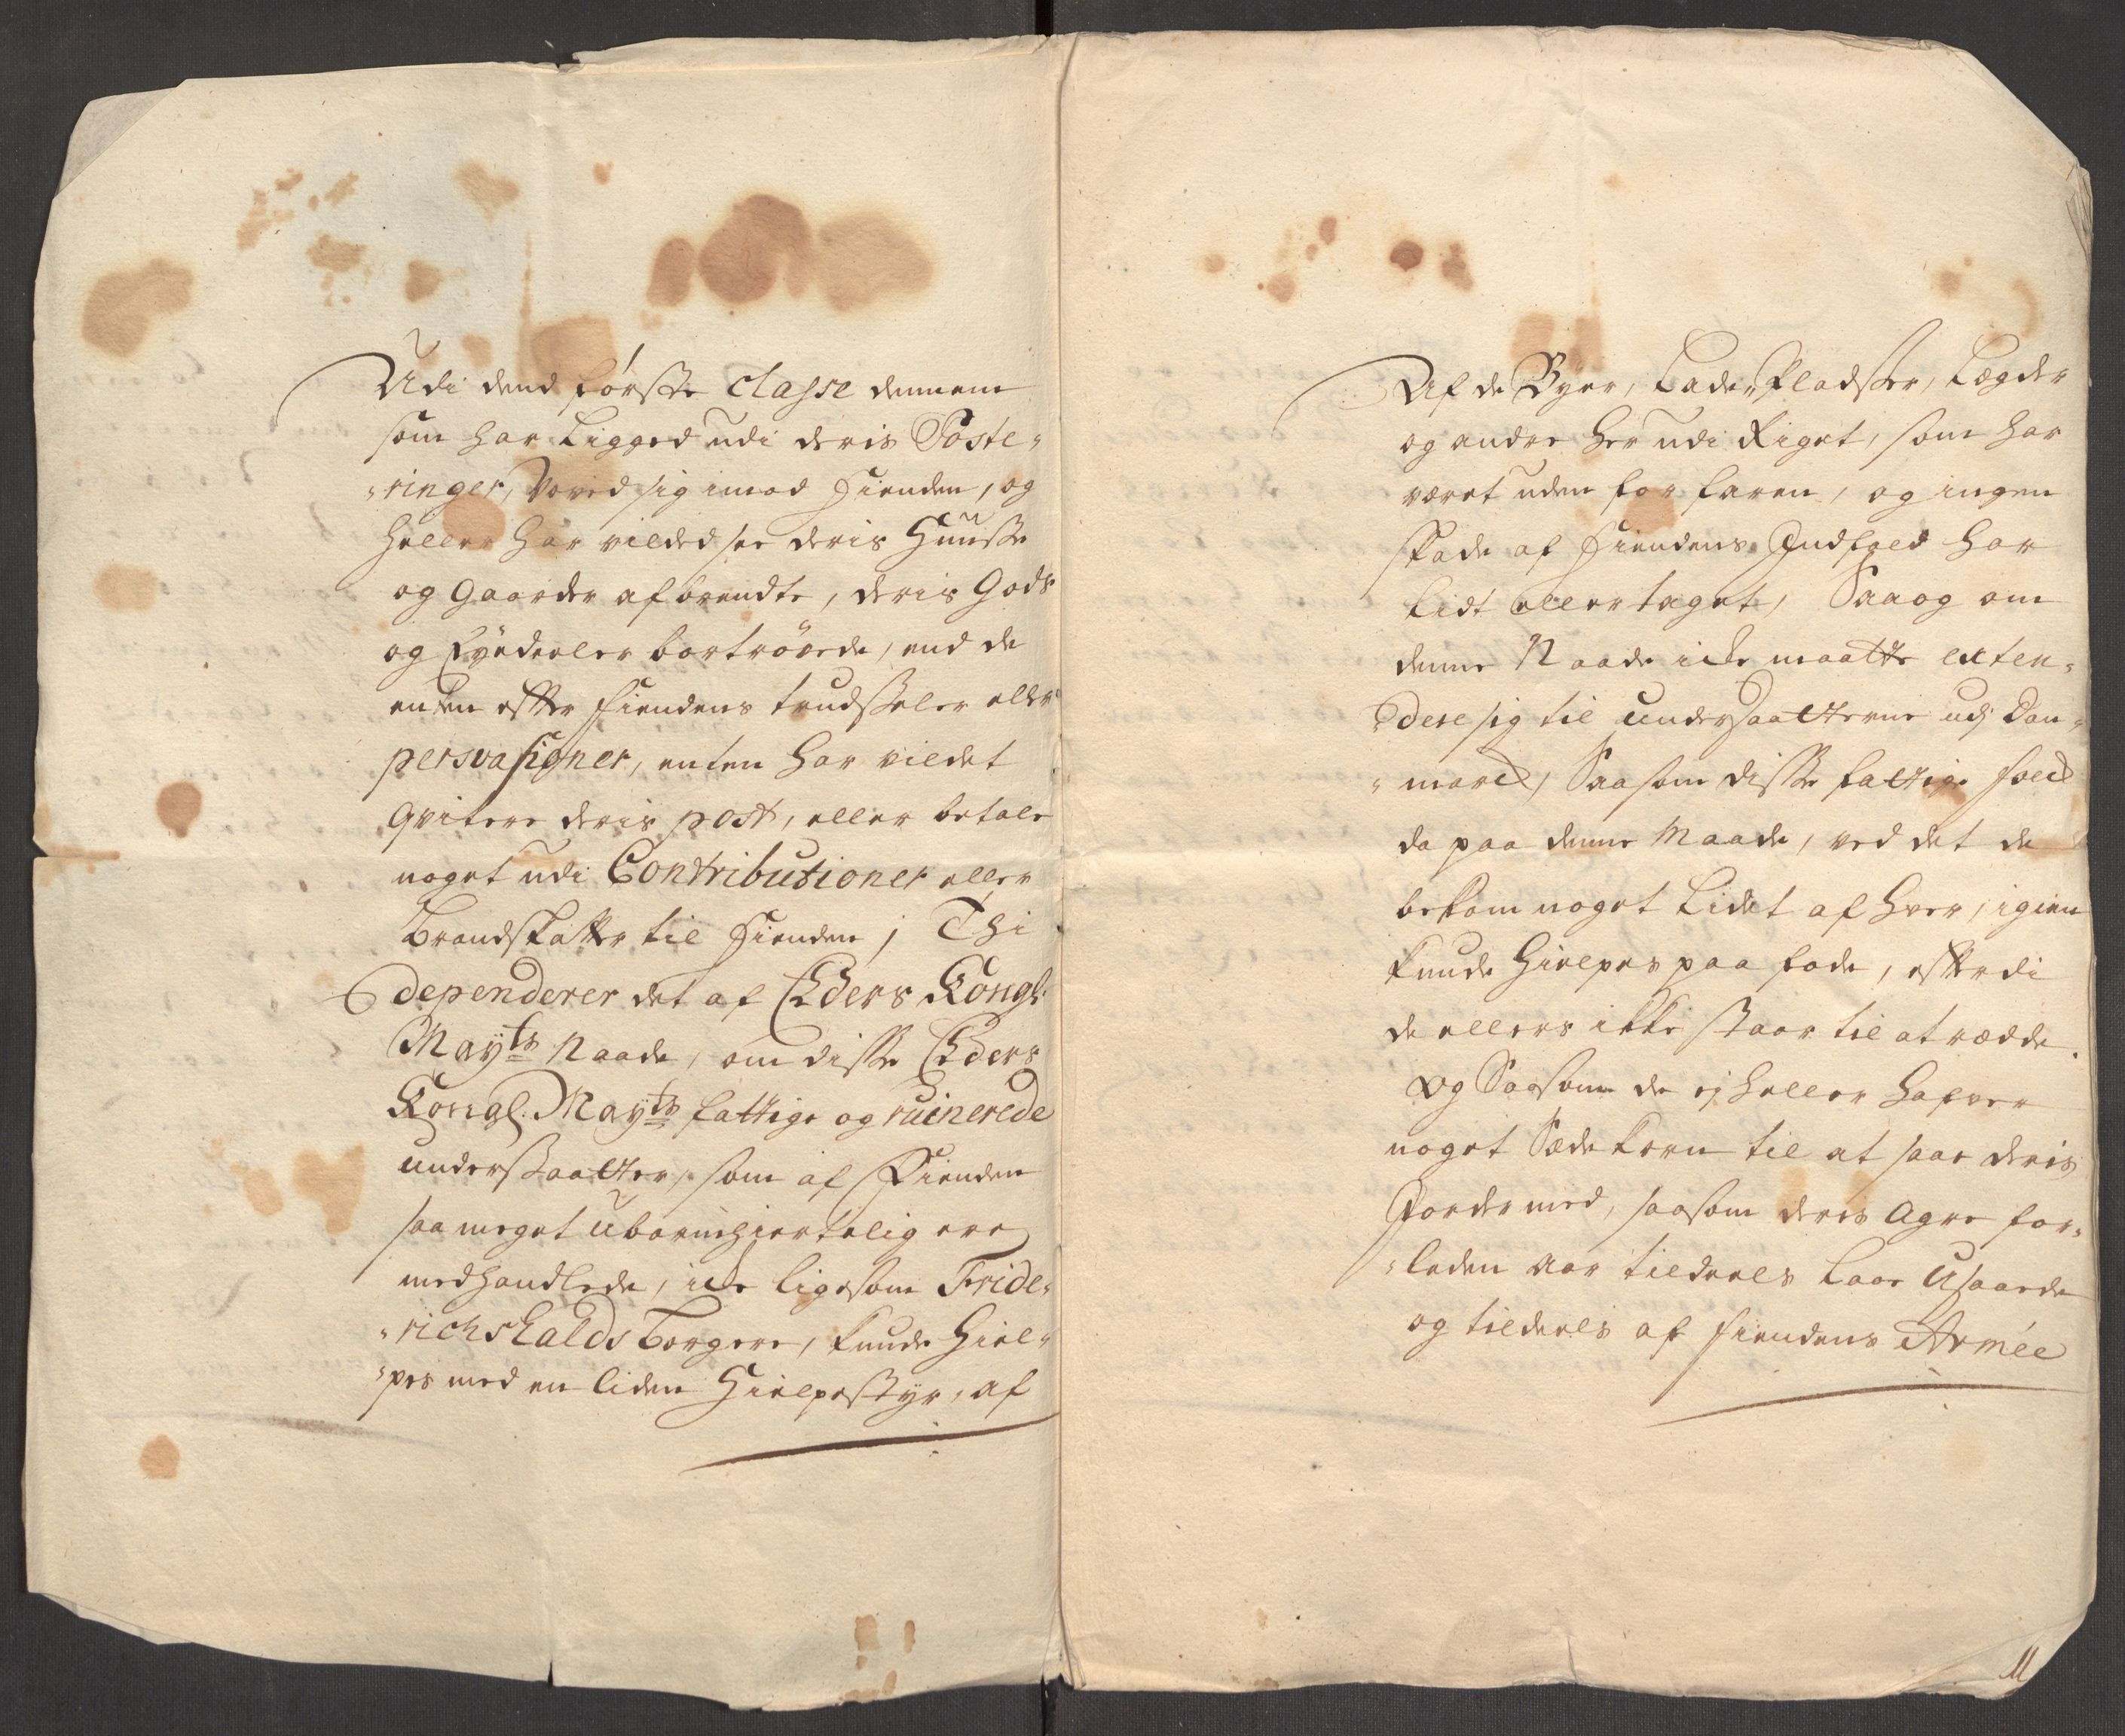 Udi dend første Classe dennem
som har Ligged udi deris Poste-
-ringer, Voved sig imod Fienden, og
heller har vilded see deris Huusse
og Gaarder afbrendte, deris Gods
og Eyedeeler bortrövede, end de
enten efter Fiendens trudsseler eller
persvasioner, enten har vildet
qvitere deris post, eller betale
noget udi Contributioner eller
Brandskatter til Fienden; Thi
dependerer det af Eders Kongl:
Mayts Naade, om disse Eders
Kongl. Mayts fattige og ruinerede
undersaatter, som af Fienden
saa meget Ubarmhiertelig ere
medhandlede, icke ligesom Fride-
-richshalds Borgere, kunde hiel-
-pes med en liden Hielpestyr, af
Af de Byer, Lade-Pladsser, Lægder
og andre her udi Riget, som har
været uden for faren, og ingen
skade af Fiendens Indfald har
Lidt eller taget, Saa og om
denne Naade icke maatte exten-
-dere sig til undersaatterne udj Dan-
-marck, Saasom disse fattige folck
da paa denne Maade, ved det de
bekom noget Lidet af hver, igien
kunde hielpes paa fode, efterdi
de ellers ikke staar til at rædde.
og Saasom de ej heller hafver
noget Sædekorn til at saae deris
Jorder med, saasom deres Agre for-
-leden Aar tildeels laae Usaaede
og tildeels af Fiendens Armée
11